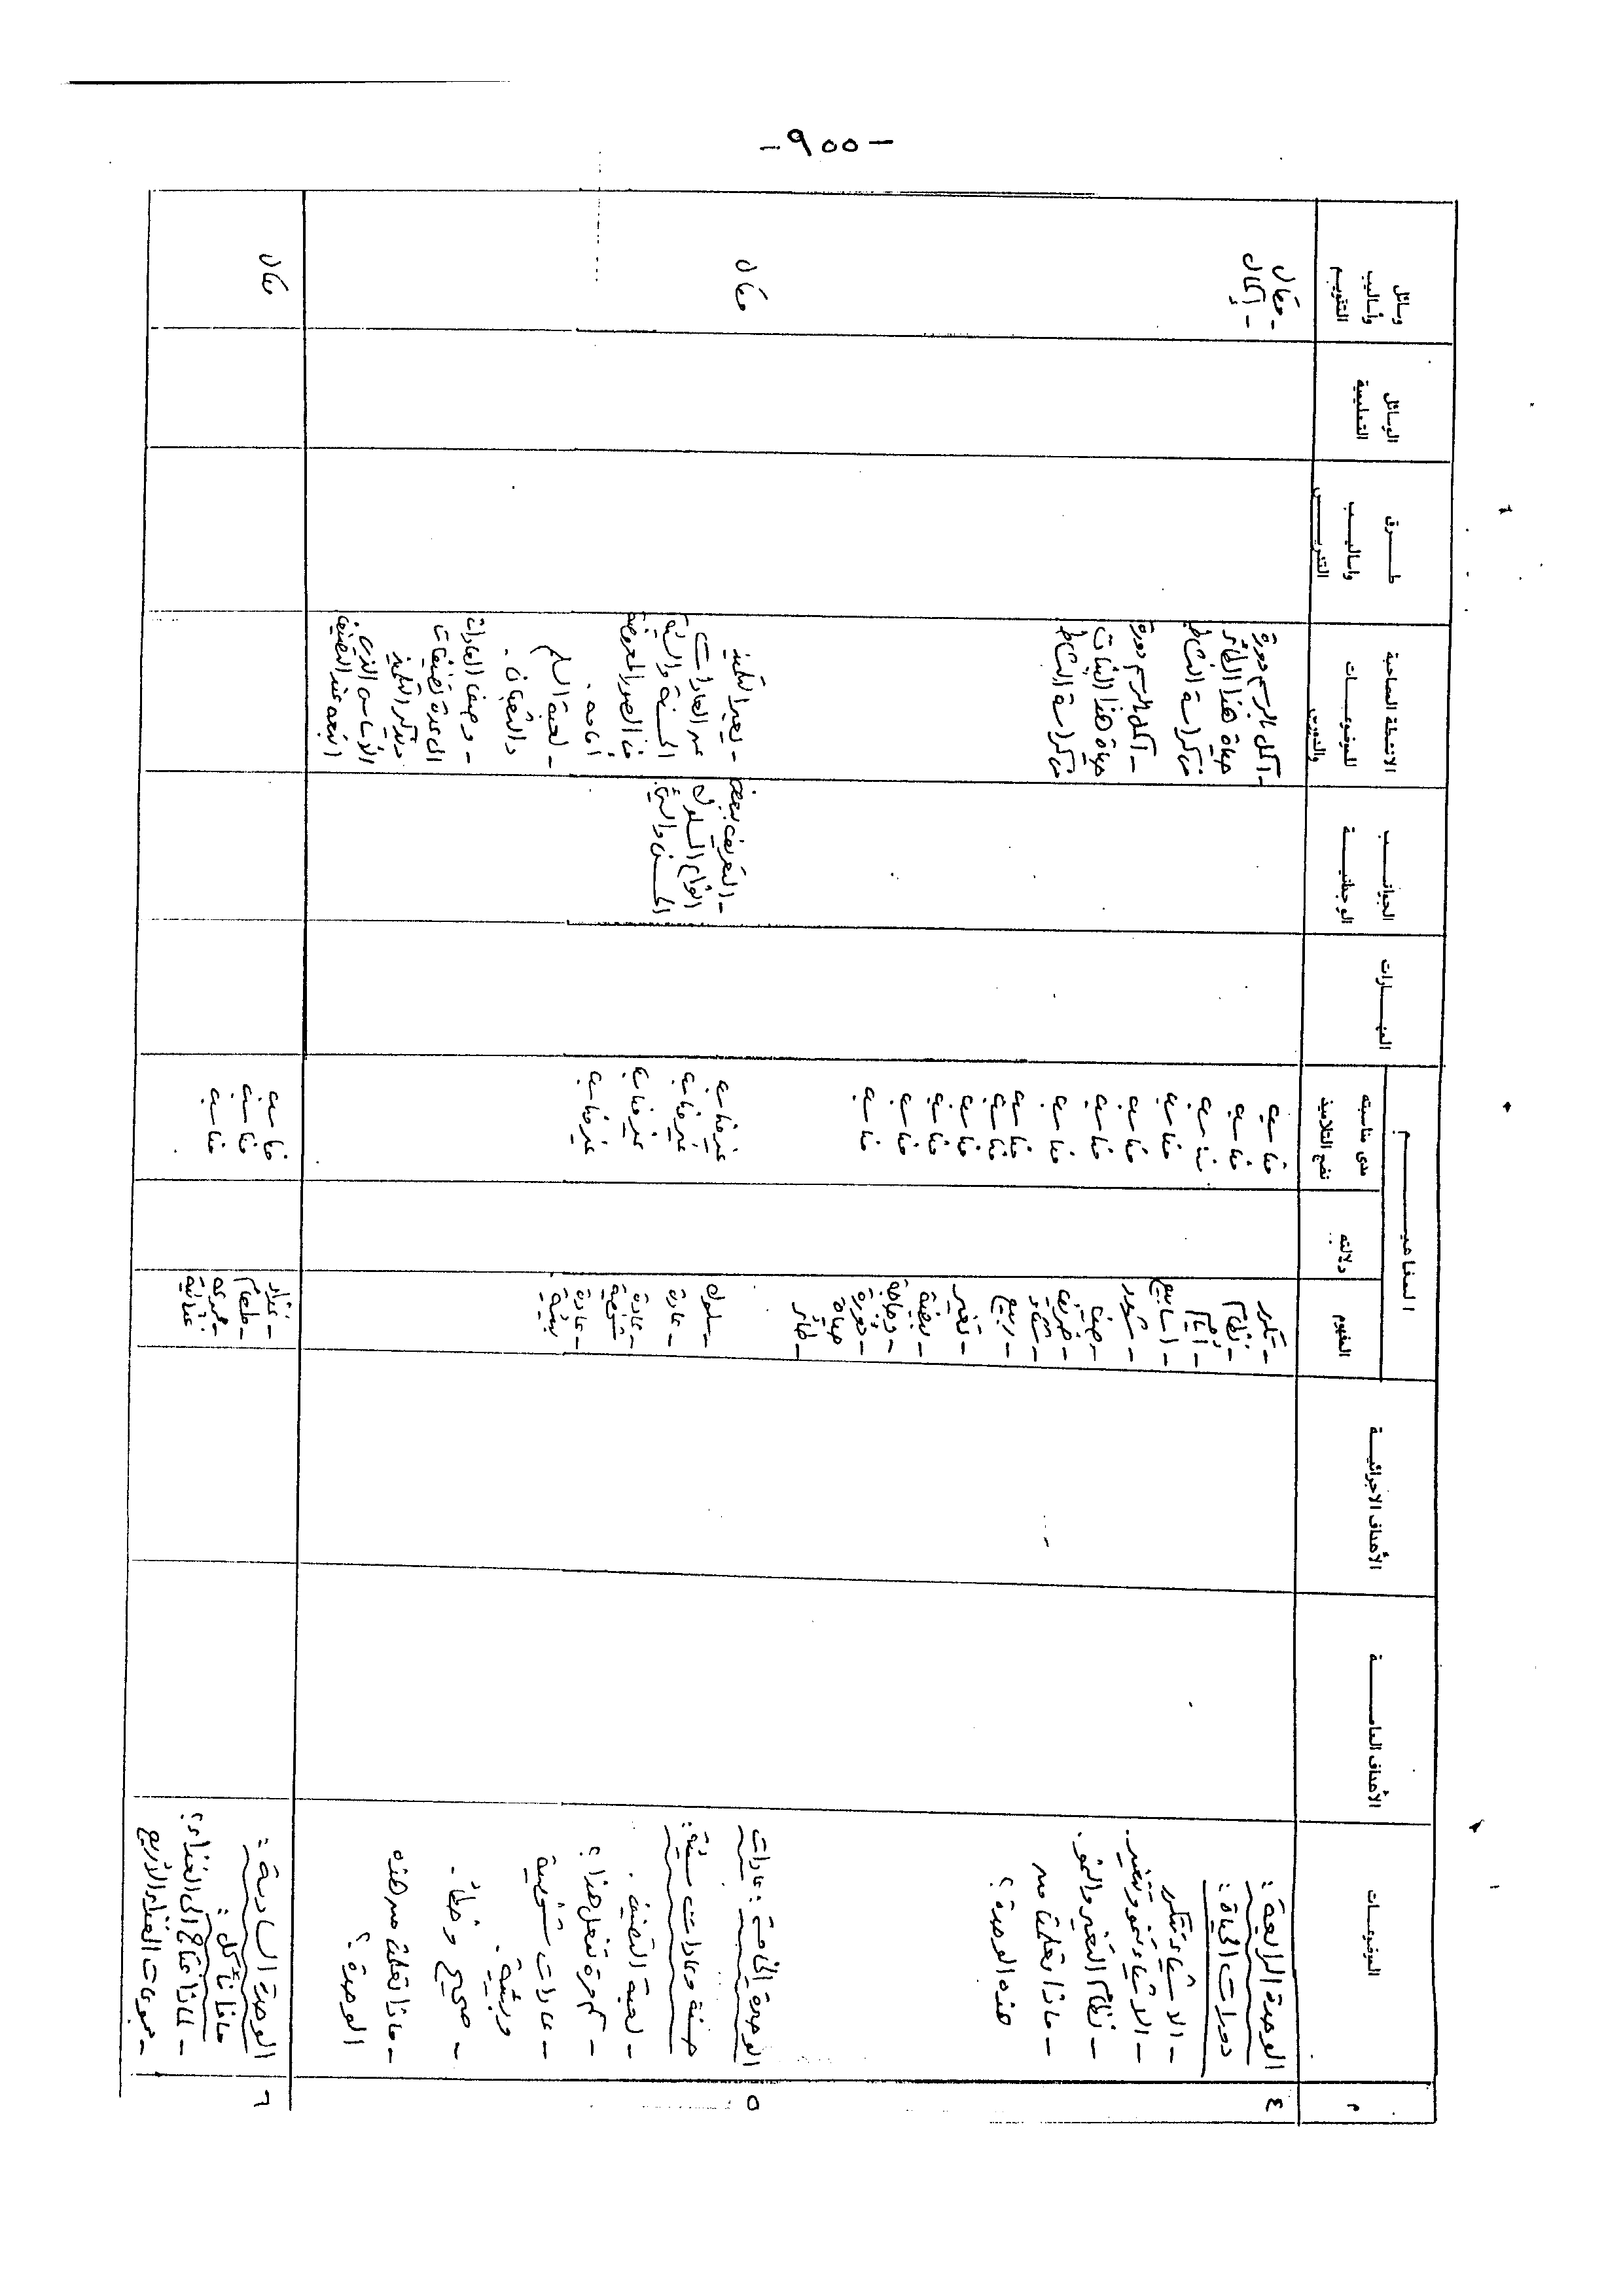 -٩٠٠-
م
الموضوعات
الأهداف العامة
الأهداف الاجرائية
المفاهيم
المفهوم
دلالته
مدى مناسبته
نضج التلاميذ
المهارات
الجوانب
الوجدانية
الانشطة المصاحبة
للموضوعات
طرق
واساليب
التدريس
الوسائل
التعليمية
وسائل
وأساليب
التقويم
٤
الوحدة الرابعة :
دورات الحياة :
- الاشياء تتكرر
- الاشياء تنمو وتتغير.
- نظام التغير والنمو.
- ماذا تعلمت من
هذه الوحدة ؟
- تكرر
- نظام
- أيام
- اسابيع
- شهور
- صيف
- خريف
- شتاء
- ربيع
- تغير
- بيضة
- دورة
حياة
- طائر
مناسب
مناسب
مناسب
مناسب
مناسب
مناسب
مناسب
مناسب
مناسب
مناسب
مناسب
مناسب
مناسب
- أكمل بالرسم دورة
حياة هذا الطائر
من كراسة النشاط
- أكمل الرسم دورة
حياة هذا النبات
من كراسة النشاط
- مقال
- إكمال
٥
الوحدة الخامسة : عادات
حسنة وعادات سيئة :
- لعبة التصنيف .
- كم مرة تفعل هذا ؟
- عادات شخصية
وبيئية .
- صحيح وخطأ .
- ماذا تعلمت من هذه
الوحدة ؟
- سلوك
- عادة
- عادة
شخصية
- عادة
بيئية
غير مناسب
غير مناسب
غير مناسب
غير مناسب
- التعريف ببعض
انواع السلوك
الحسن والسيئ
- يعبر التلميذ
عن العادات
الحسنة والسيئة
من الصور المعروضة
أمامه .
- لعبة السلم
والثعبان .
- وصف العادات
الى عدة تصنيفات
ويذكر التلميذ
الأساس الذى
اتبعه عند التصنيف
مقال
٦
الوحدة السادسة :
ماذا نأكل :
- لماذا نحتاج الى الغذاء؟
- مجموعات الغذاء الأربع
- غذاء
- طعام
- مجموعة
غذائية
مناسب
مناسب
مناسب
مقال